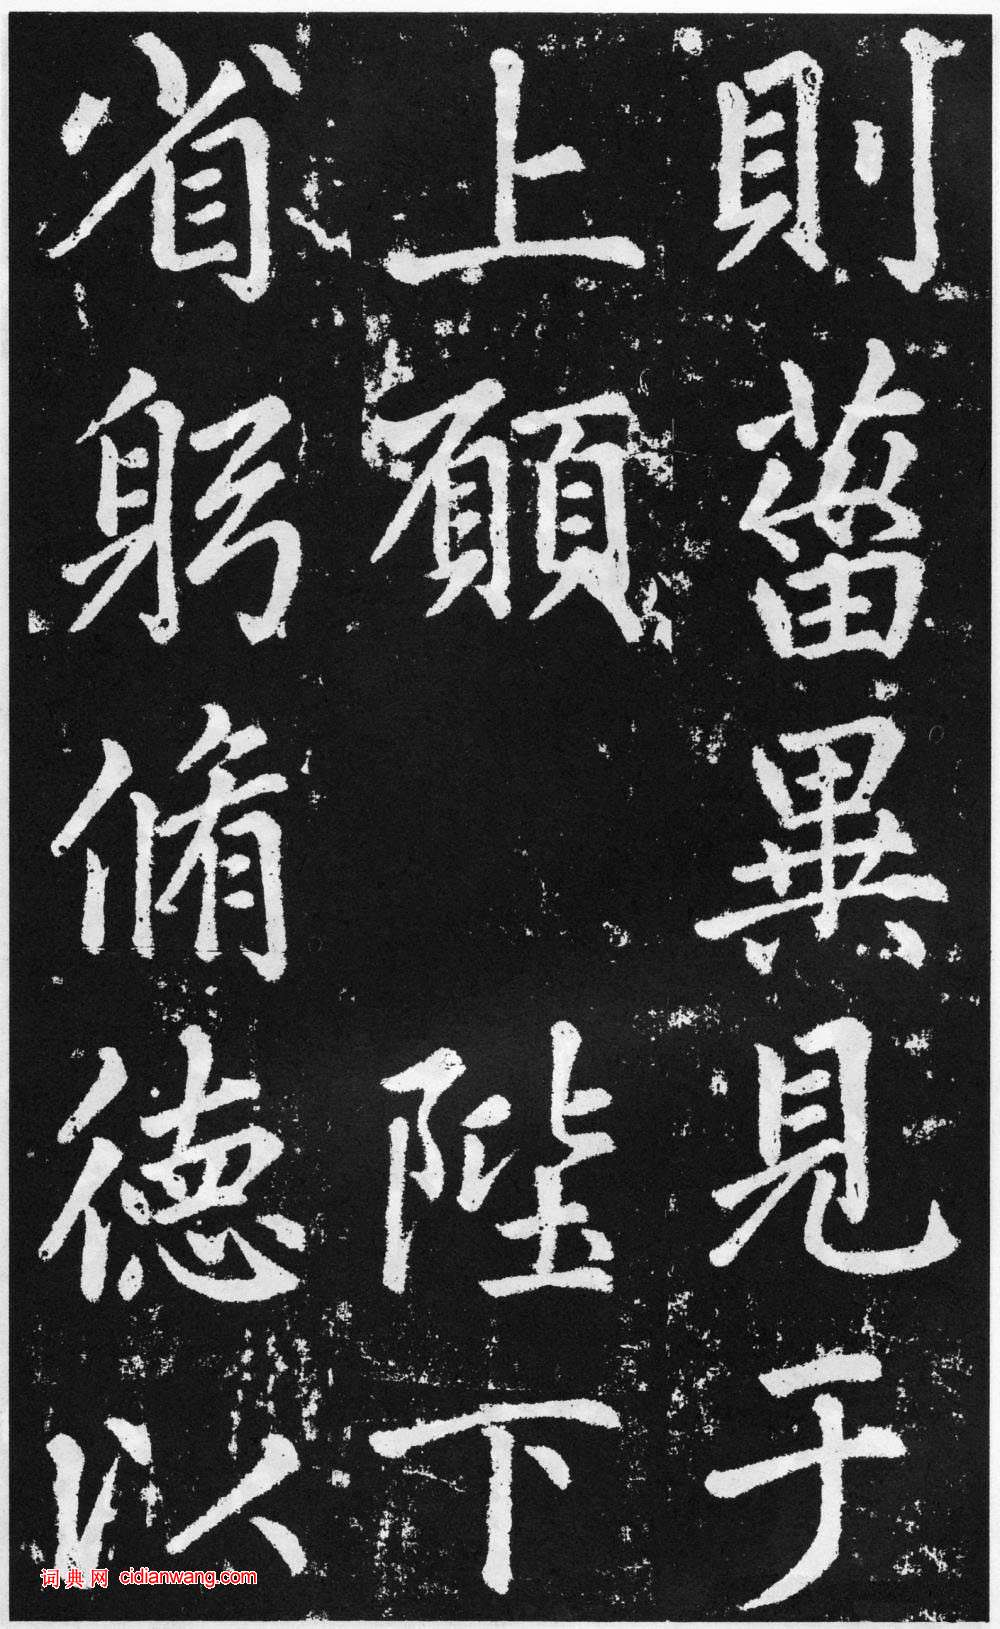 則菑異見于
上願 陛下
省躬脩德以
词典网 cidianwang.com